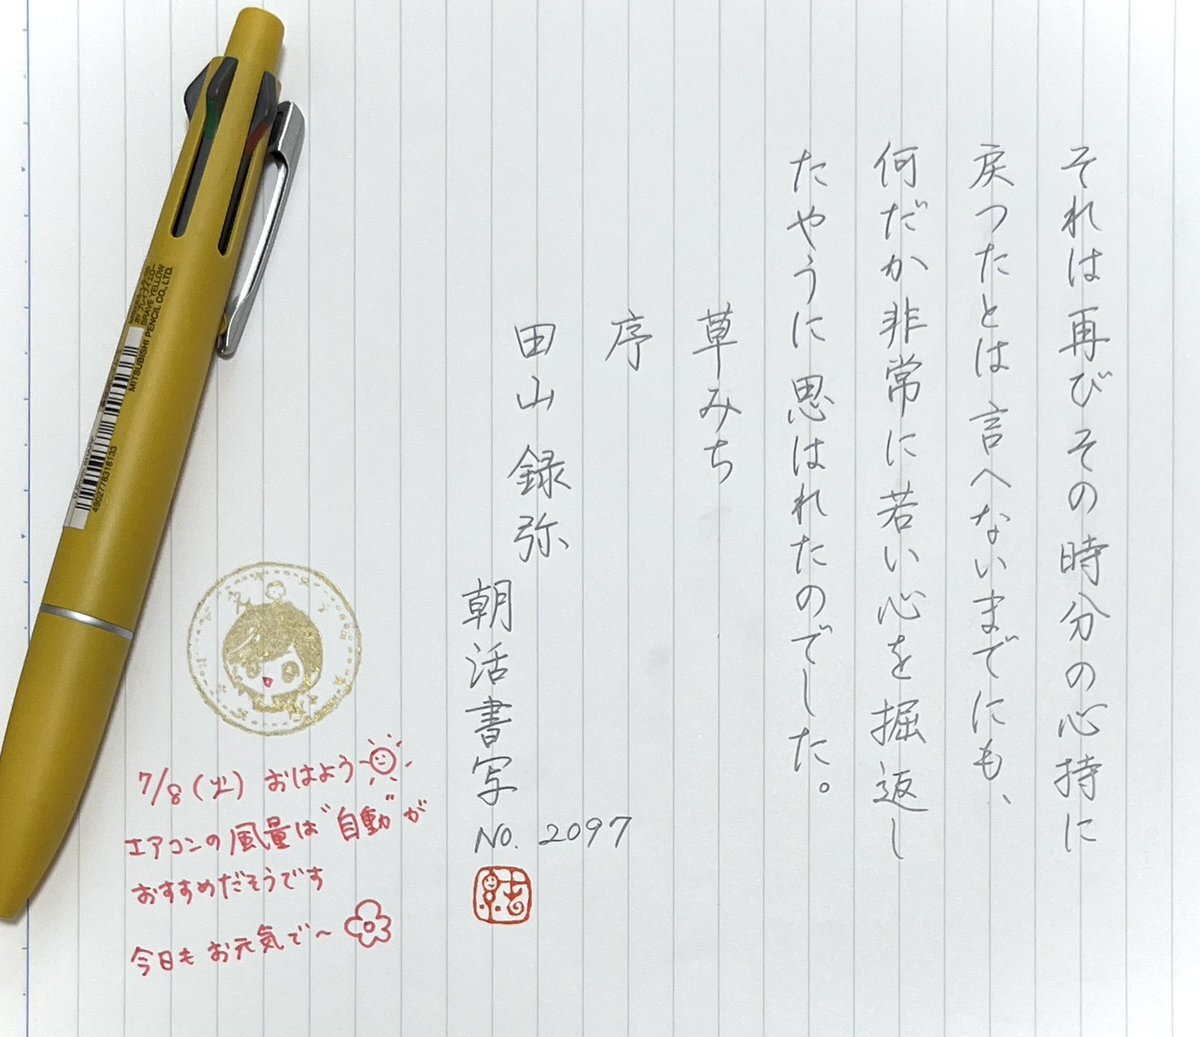 それは再びその時分の心持に
戻つたとは言へないまでにも、
何だか非常に若い心を掘返し
たやうに思はれたのでした。
草みち
序
田山録弥
朝活書写
No. 2097
7/8(火) おはよう
エアコンの風量は"自動"が
おすすめだそうです
今日もお元気で〜
BRAVE YELLOW
MITSUBISHI PENCIL CO., LTD.
4902778318133